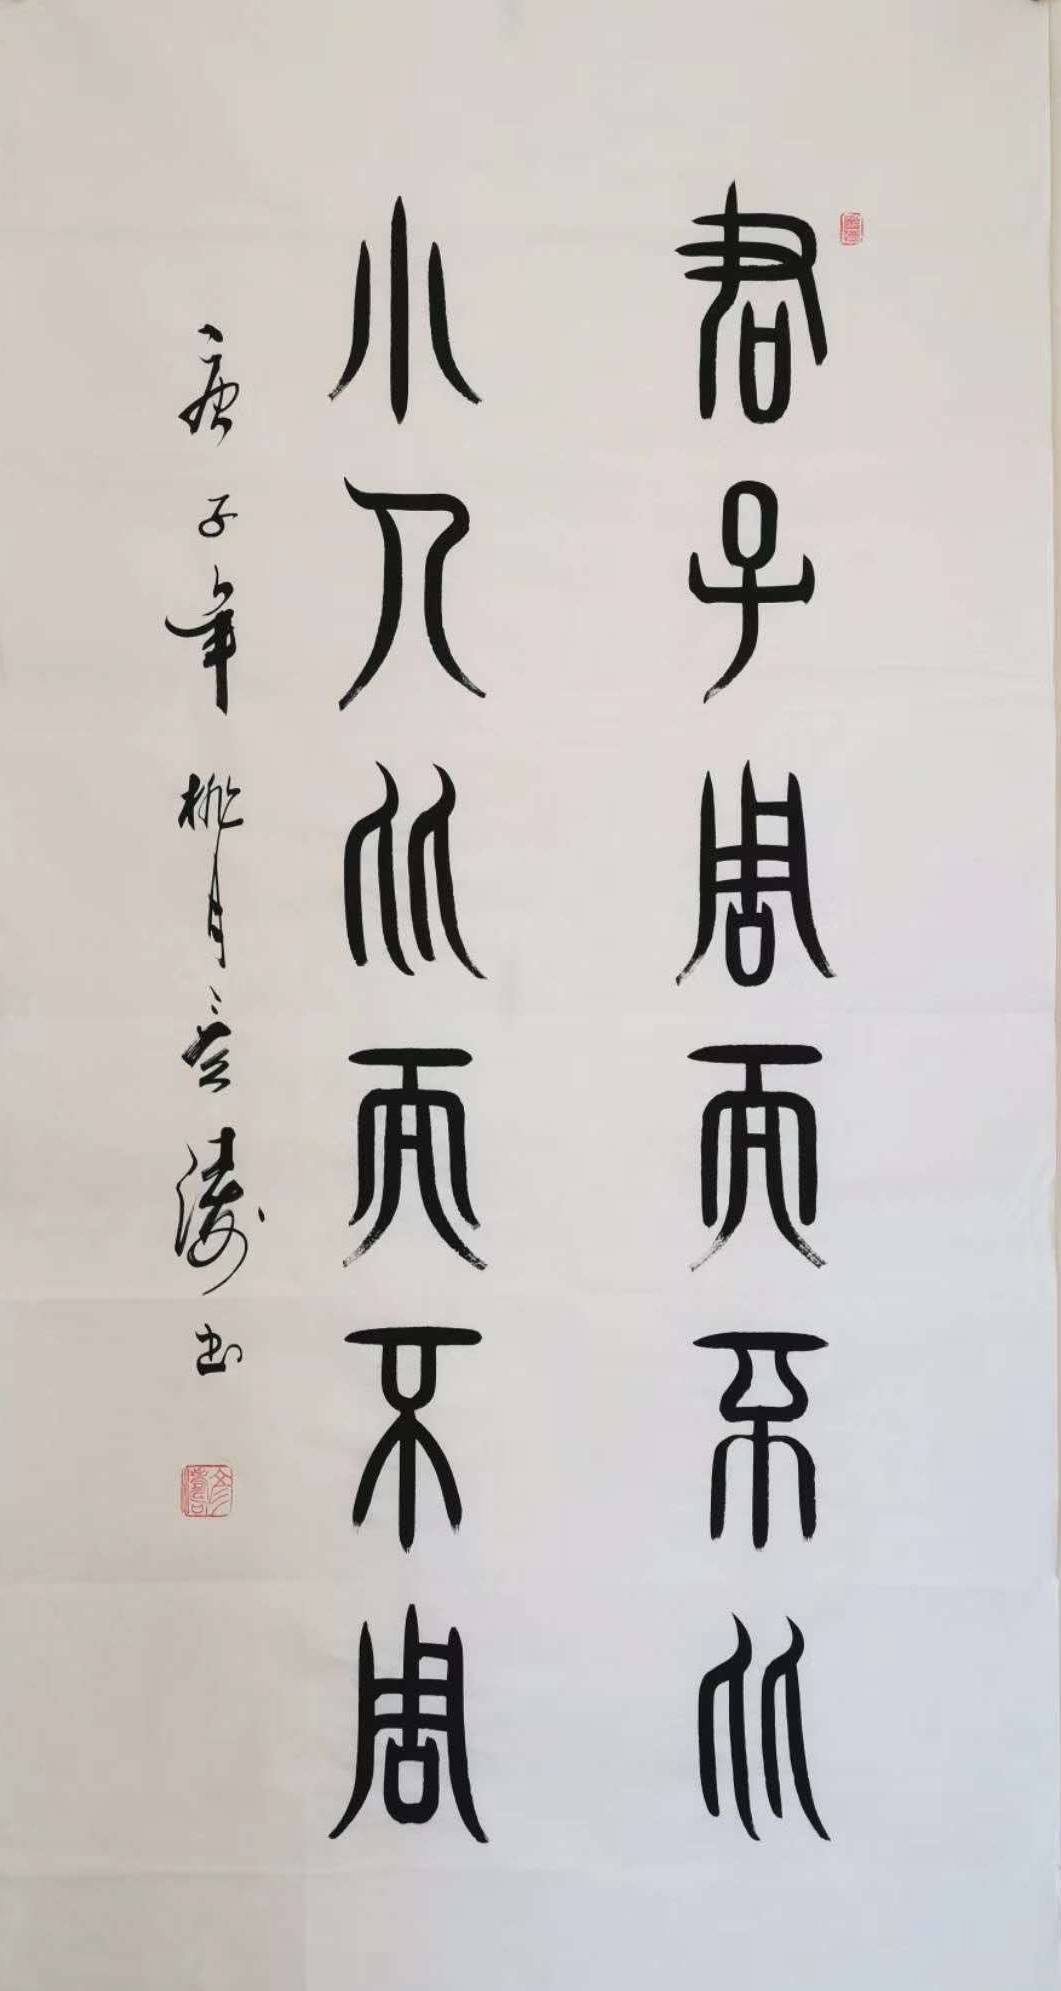 君子周而不比
小人比而不周
庚子年桃月彦涛书